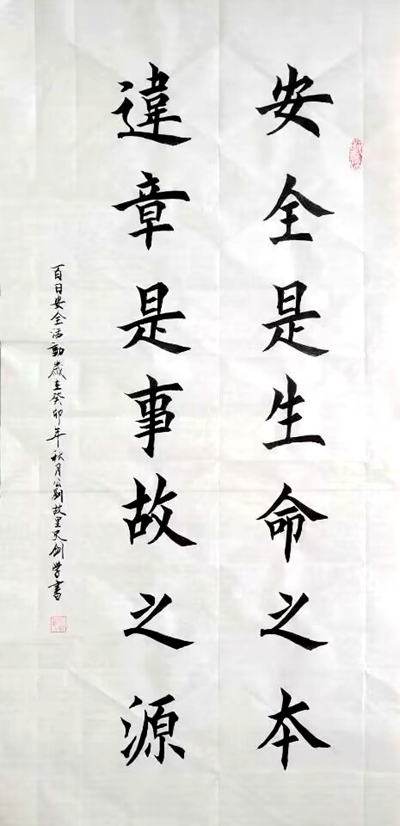 安全是生命之本
違章是事故之源
百日安全活動歲在癸卯年秋月公劉故里史學書